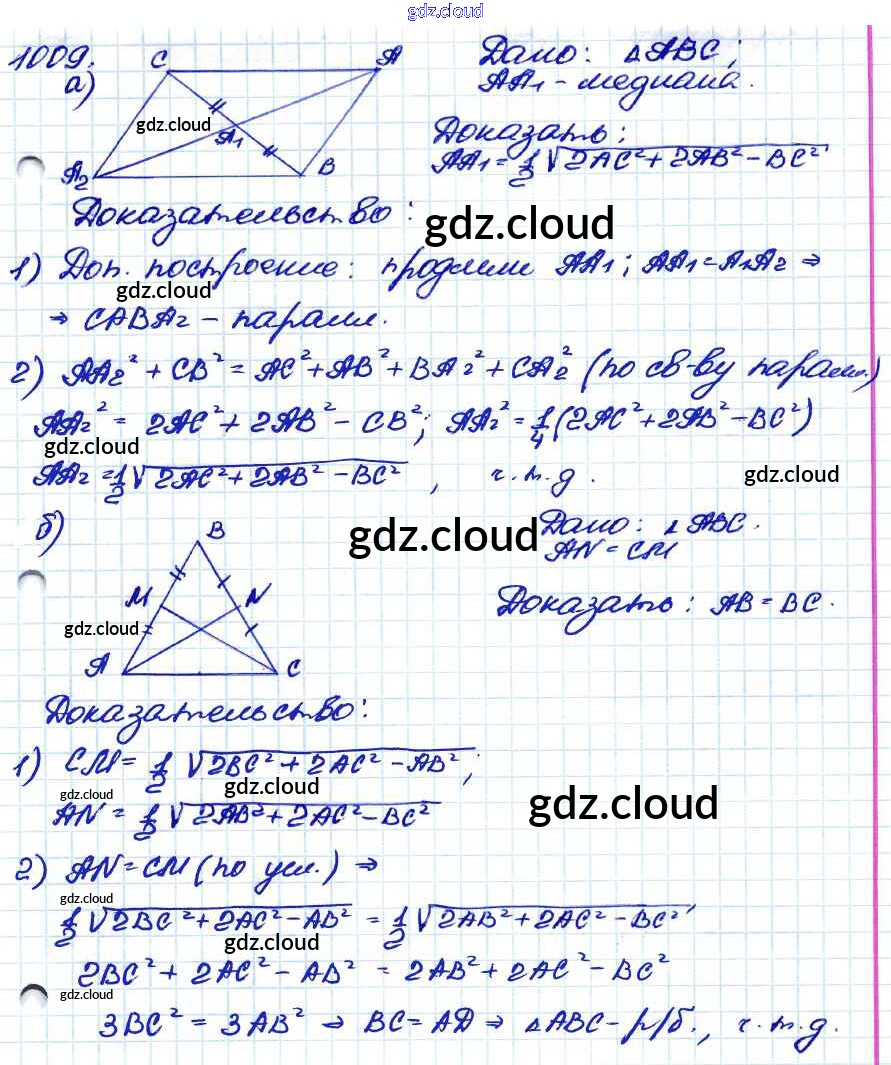 gdz.cloud
1009.
а)
C A
A₁
A₂ B
gdz.cloud
Дано: △ABC;
AA₁ - медиана.
Доказать:
AA₁ = 1/2 √(2AC² + 2AB² - BC²)
Доказательство:
gdz.cloud
1) Доп. построение: продлим AA₁; AA₁ = A₁A₂ ⇒
gdz.cloud
⇒ CABA₂ - паралл.
2) AA₂² + CB² = AC² + AB² + BA₂² + CA₂² (по св-ву паралл.)
AA₂² = 2AC² + 2AB² - CB²; AA₂² = 1/4 (2AC² + 2AB² - BC²)
gdz.cloud
gdz.cloud
AA₂ = 1/2 √(2AC² + 2AB² - BC²), ч.т.д.
б)
B
M N
A C
gdz.cloud
gdz.cloud
Дано: △ABC.
AN = CM
Доказать: AB = BC.
Доказательство:
1) CM = 1/2 √(2BC² + 2AC² - AB²);
gdz.cloud
gdz.cloud
AN = 1/2 √(2AB² + 2AC² - BC²)
gdz.cloud
2) AN = CM (по усл.) ⇒
gdz.cloud
1/2 √(2BC² + 2AC² - AB²) = 1/2 √(2AB² + 2AC² - BC²)
gdz.cloud
2BC² + 2AC² - AB² = 2AB² + 2AC² - BC²
gdz.cloud
3BC² = 3AB² ⇒ BC = AD ⇒ △ABC - р/б., ч.т.д.